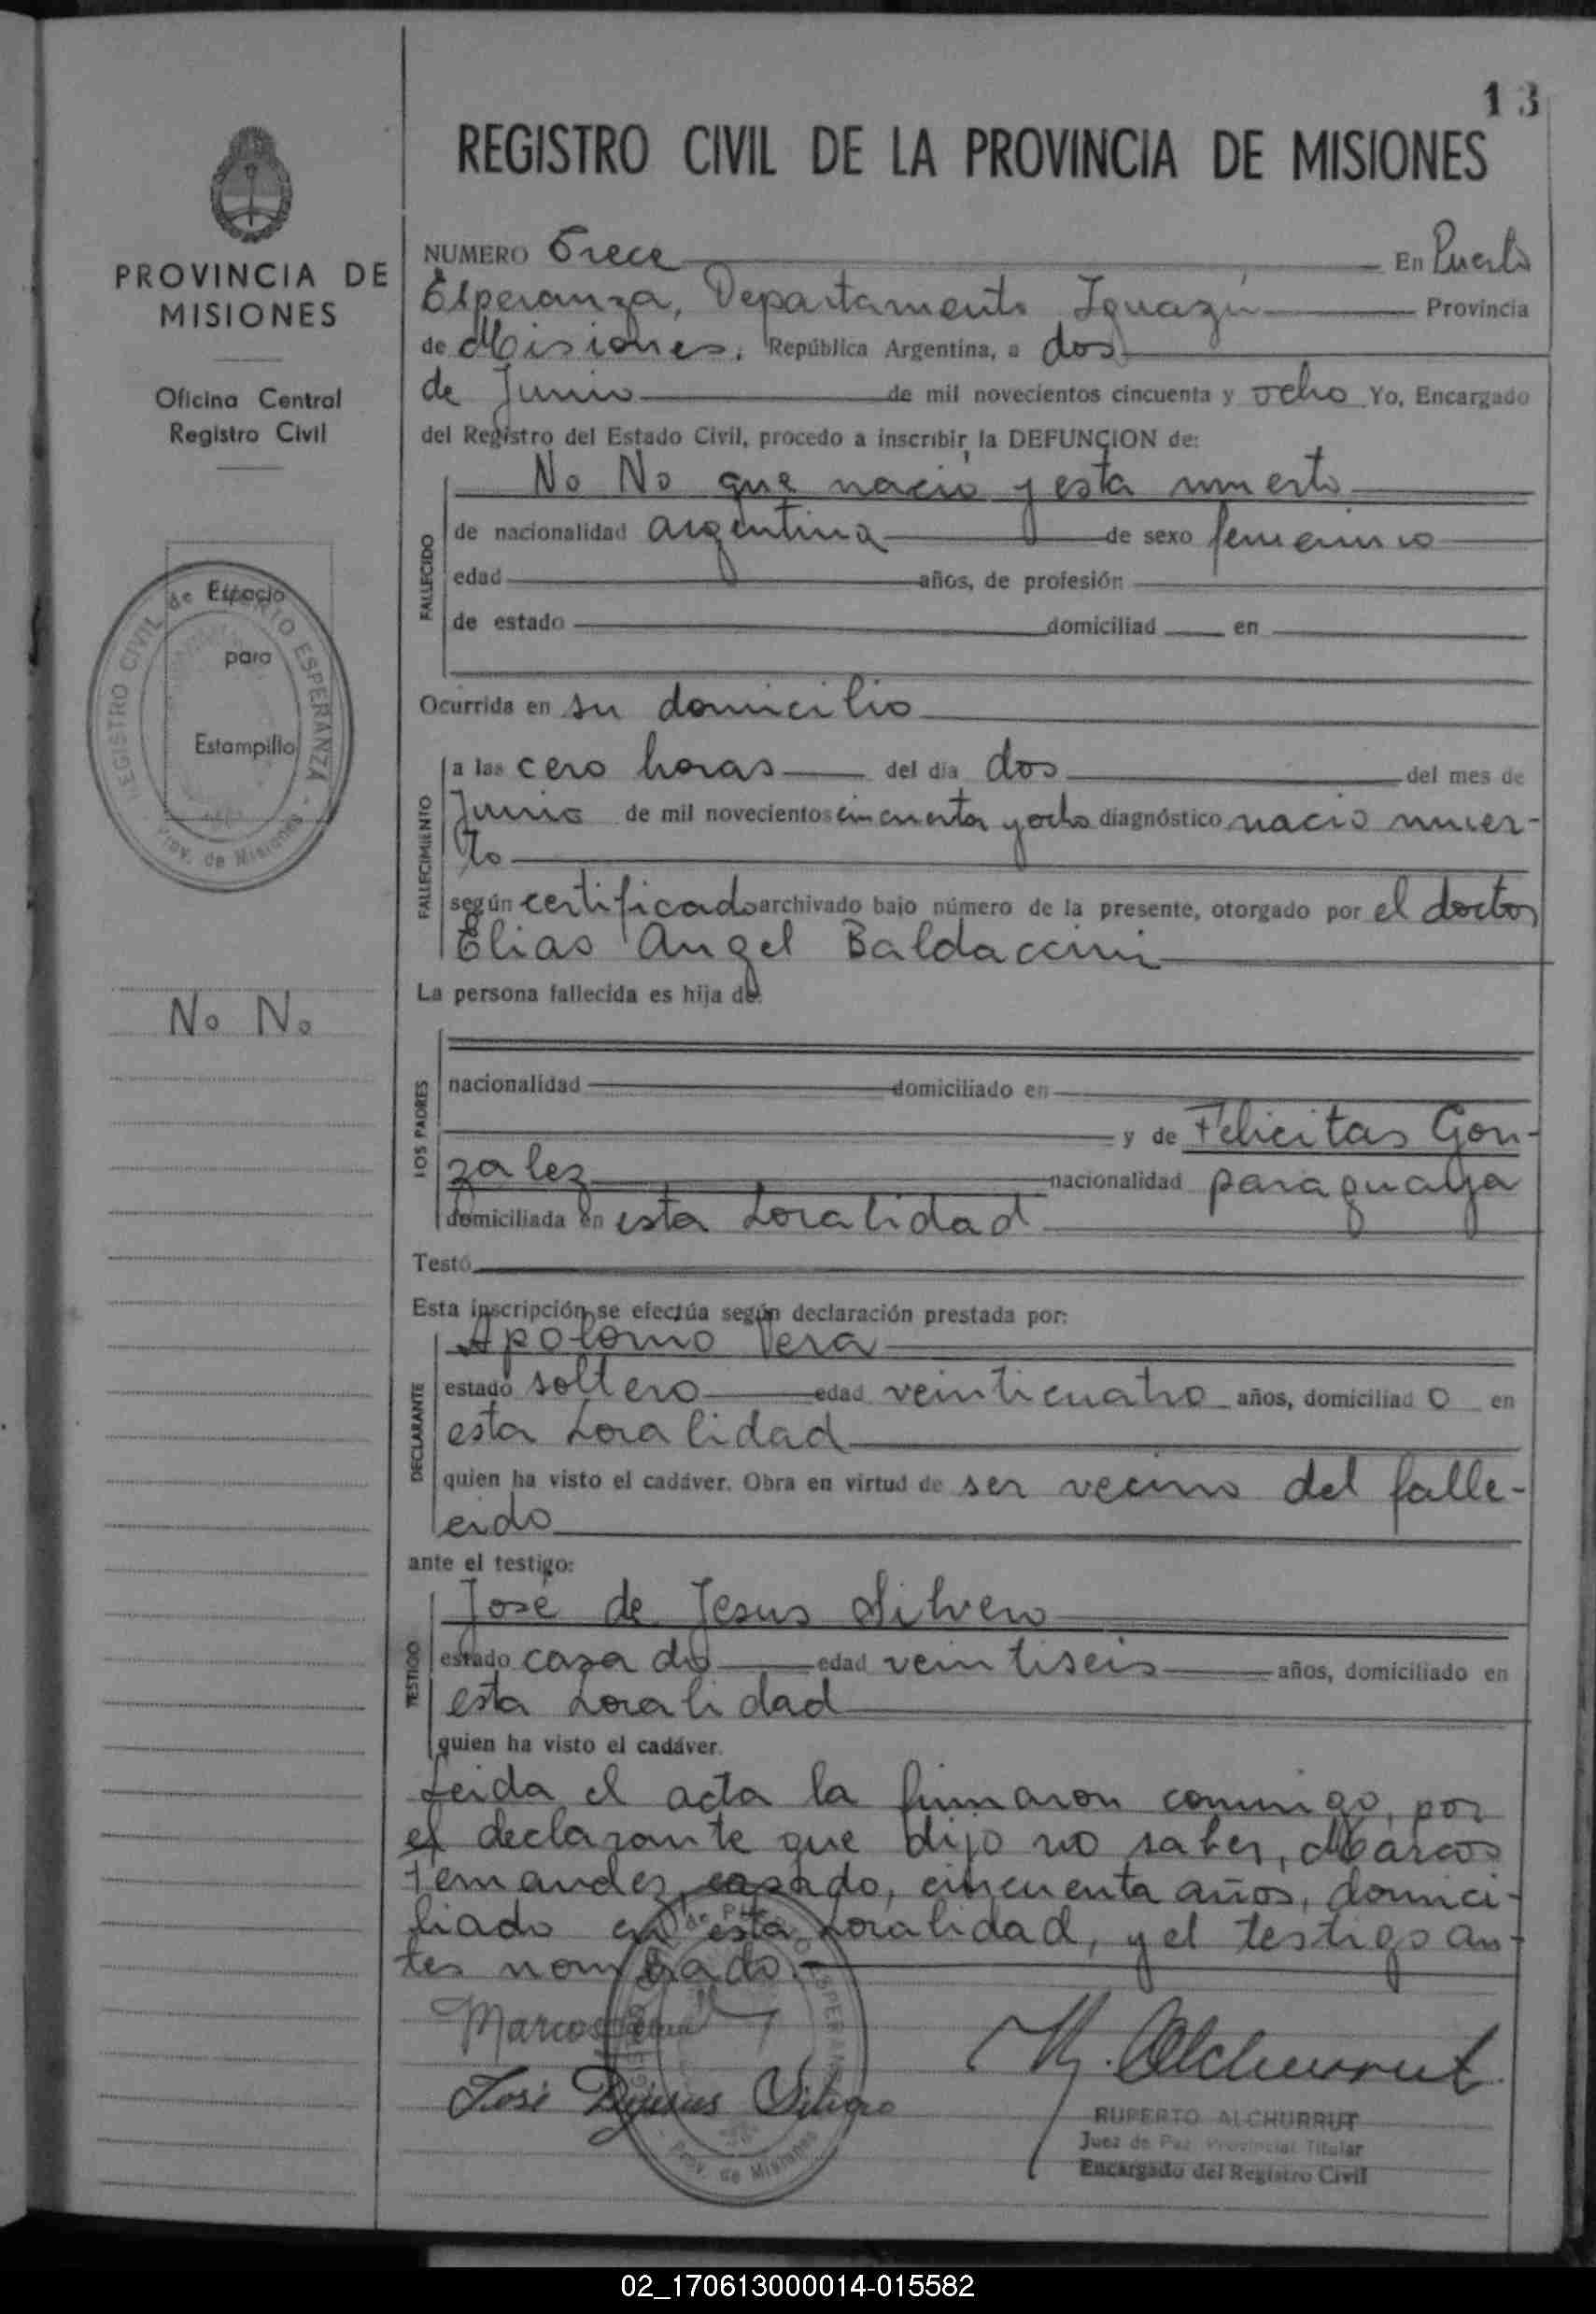 13
REGISTRO CIVIL DE LA PROVINCIA DE MISIONES
PROVINCIA DE
MISIONES
Oficina Central
Registro Civil
NUMERO Trece En Puerto
Esperanza, Departamento Iguazú Provincia
de Misiones, República Argentina, a dos
de Junio de mil novecientos cincuenta y ocho Yo, Encargado
del Registro del Estado Civil, procedo a inscribir la DEFUNCION de:
FALLECIDO
No No que nació y esta muerto
de nacionalidad argentina de sexo femenino
edad años, de profesión
de estado domiciliad en
Espacio
para
Estampilla
REGISTRO CIVIL de PUERTO ESPERANZA
Prov. de Misiones
Ocurrida en su domicilio
FALLECIMIENTO
a las cero horas del día dos del mes de
Junio de mil novecientos cincuenta y ocho diagnóstico nacio muer-
to
según certificado archivado bajo número de la presente, otorgado por el doctor
Elias Angel Baldaccini
No No
La persona fallecida es hija de:
LOS PADRES
nacionalidad domiciliado en
y de Felicitas Gon-
zalez nacionalidad paraguaya
domiciliada en esta Localidad
Testó
Esta inscripción se efectúa según declaración prestada por:
DECLARANTE
Apolonio Vera
estado soltero edad veinticuatro años, domiciliad o en
esta Localidad
quien ha visto el cadáver. Obra en virtud de ser vecino del falle-
cido
ante el testigo:
TESTIGO
José de Jesus Silvero
estado casado edad veintiseis años, domiciliado en
esta Localidad
quien ha visto el cadáver.
Leida el acta la firmaron conmigo, por
el declarante que dijo no saber, Marcos
Fernandez, casado, cincuenta años, domici-
liado en esta Localidad, y el testigo an-
tes nombrado.
Marcos
José Dejesus Silvero
R. Alchurrut
RUPERTO ALCHURRUT
Juez de Paz Provincial Titular
Encargado del Registro Civil
Prov. de Misiones
02_170613000014-015582